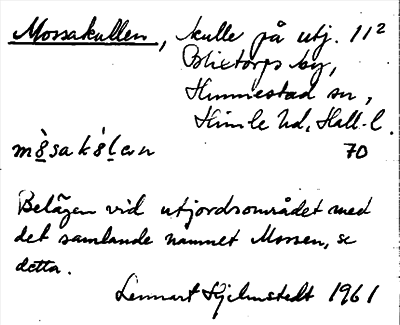 Mossakullen, kulle på utj. 11²
Blixtorps by,
Hunnestad sn,
Himle hd, Hall. l.
mò̤sakò̤ḷən 70
Belägen vid utjordsområdet med
det samlande namnet Mossen, se
detta.
Lennart Hjelmstedt 1961